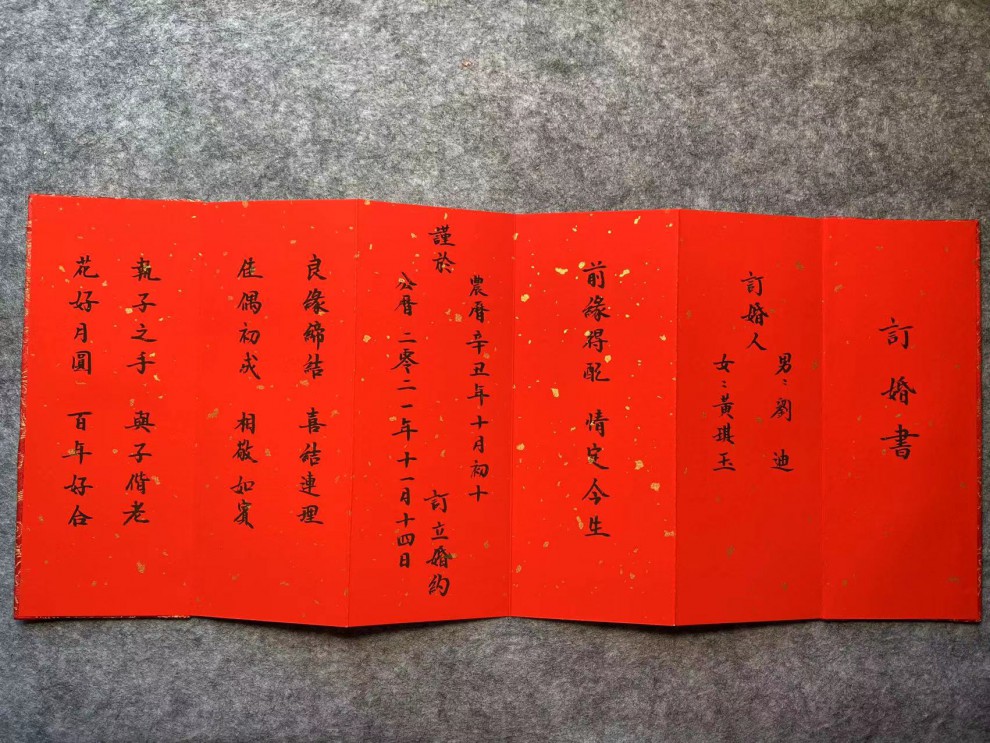 訂婚書
訂婚人
男：劉迪
女：黃琪玉
前緣得配 情定今生
謹於
農曆辛丑年十月初十
公曆二零二一年十一月十四日
訂立婚約
良緣締結 喜結連理
佳偶初成 相敬如賓
執子之手 與子偕老
花好月圓 百年好合